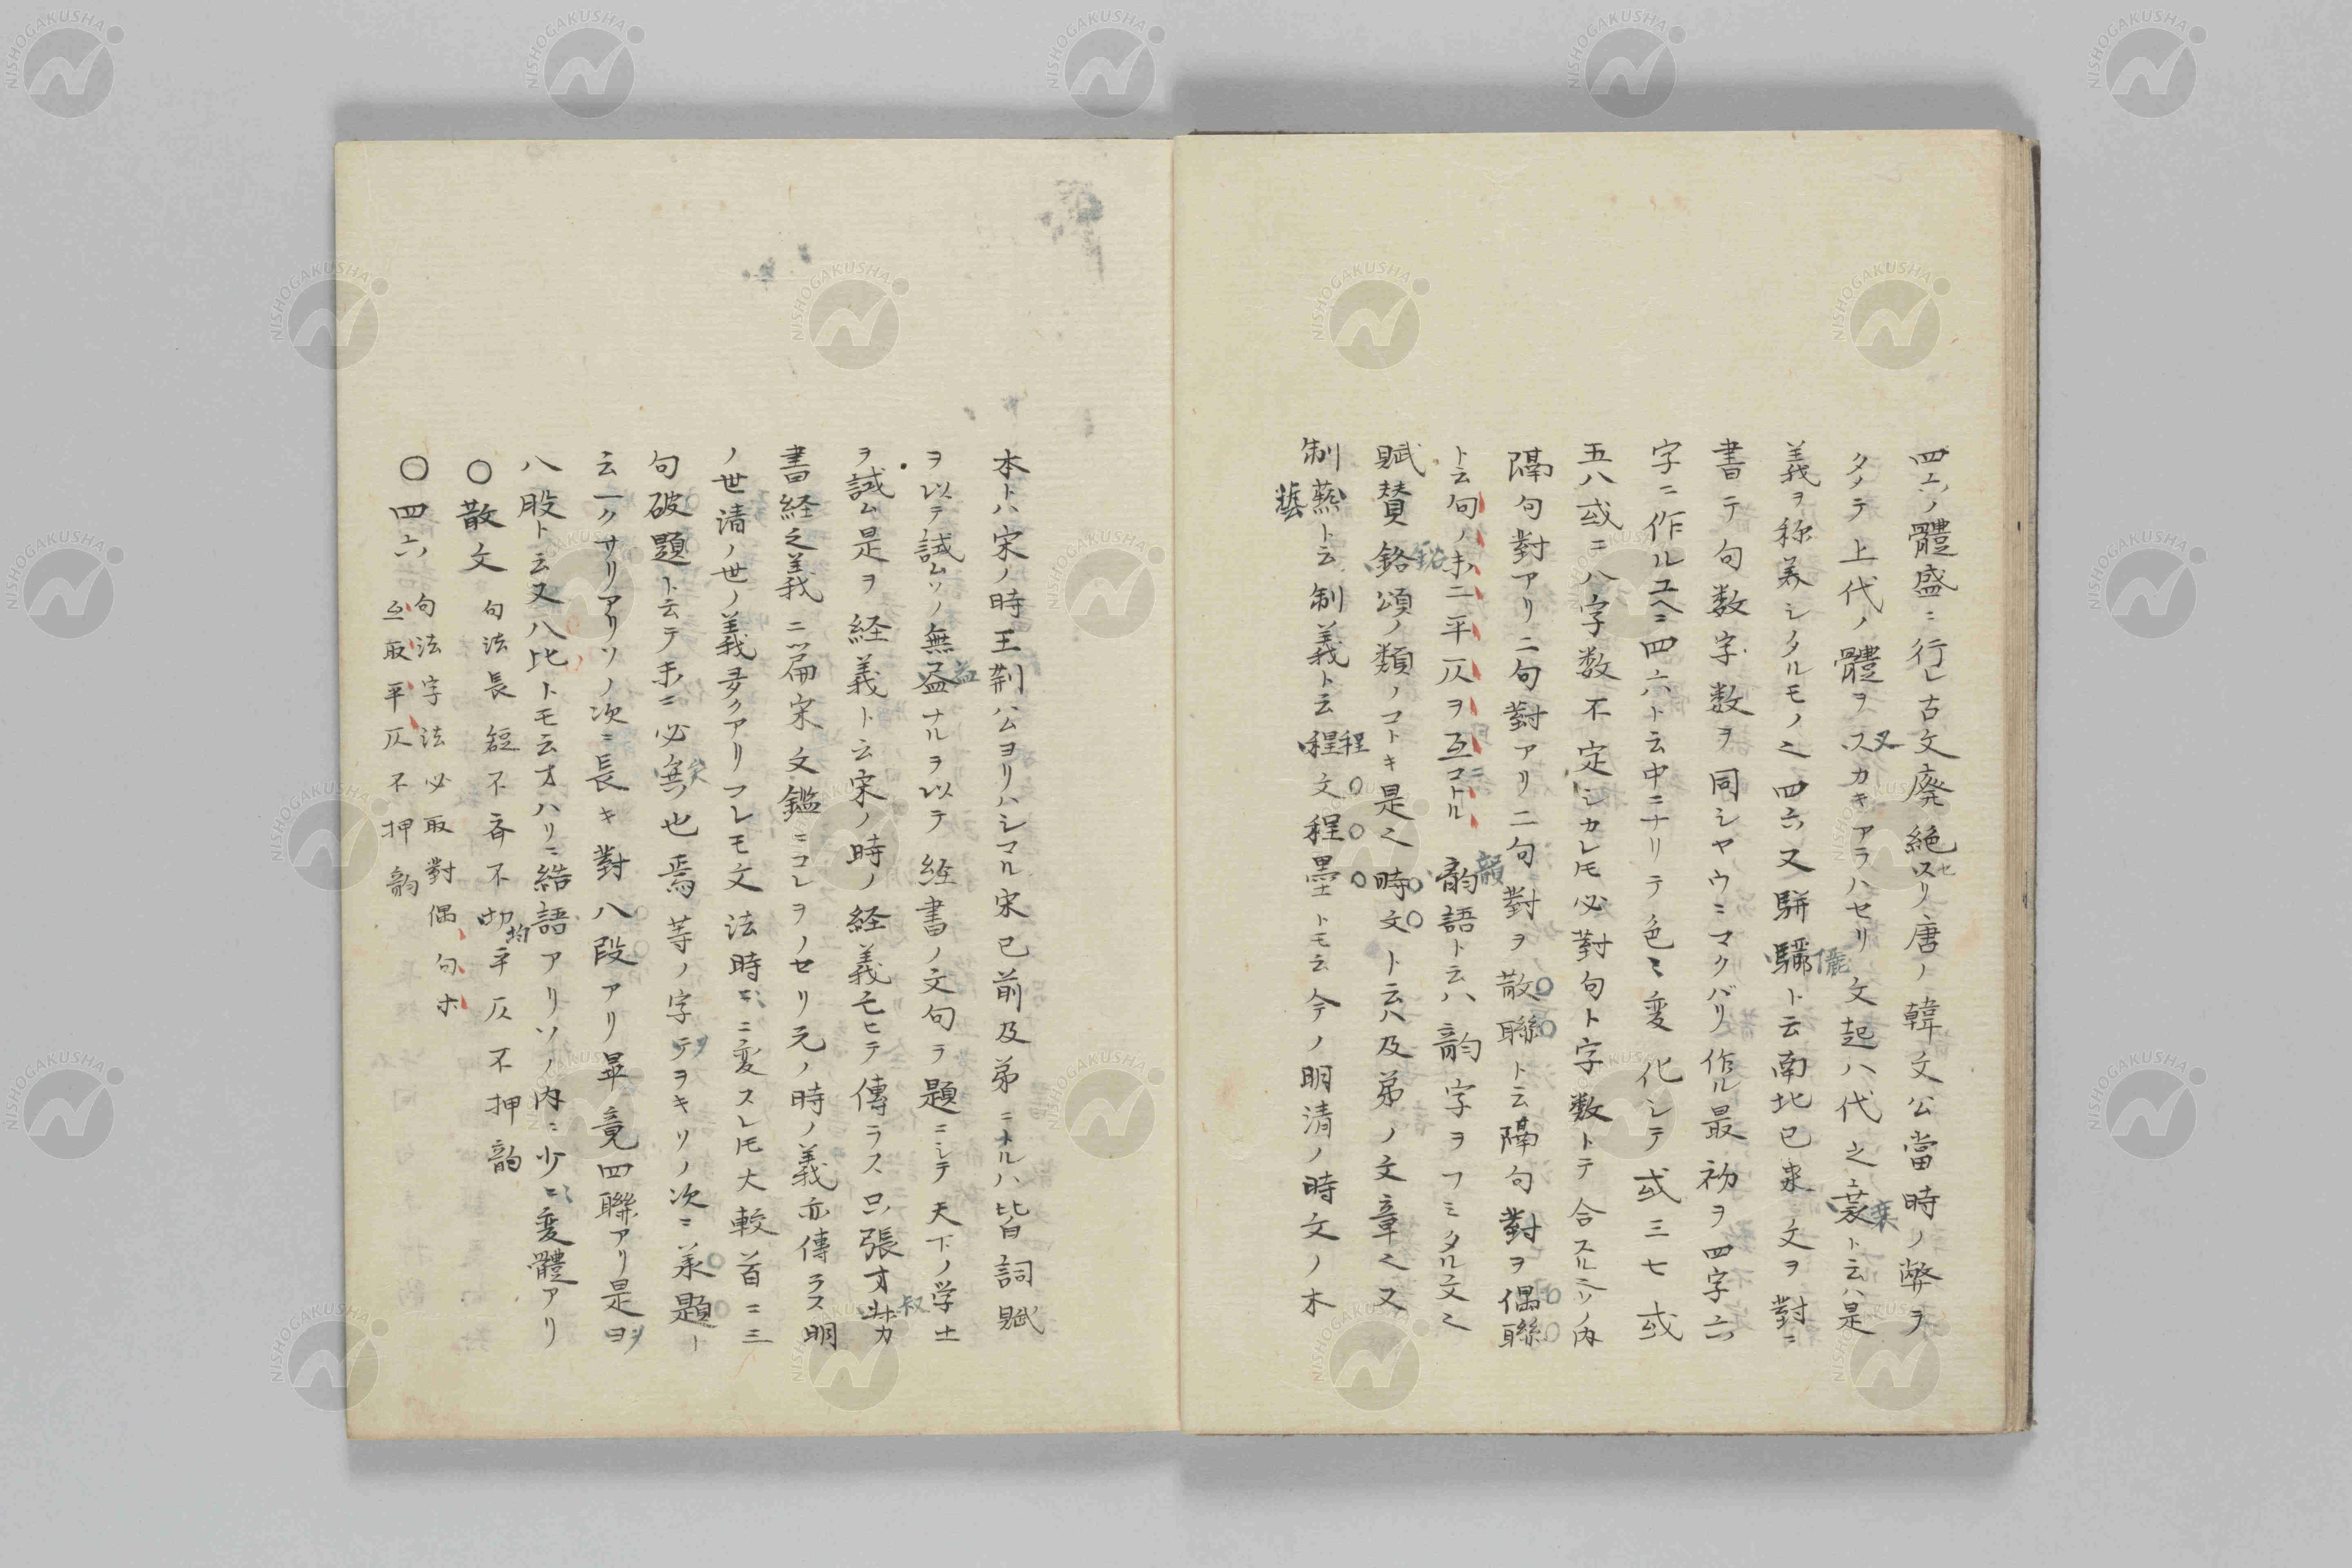 四六ノ體盛ニ行レ古文廃絶セリ唐ノ韓文公當時ノ弊ヲ
タメテ上代ノ體ヲ又カキアラハセリ文起八代之衰ト云ハ是
義ヲ称美シタルモノ之四六又駢儷ト云南北已来文ヲ對ニ
書テ句数字数ヲ同シヤウニマクバリ作ル最初ヲ四字六
字ニ作ルユヘニ四六ト云中ニナリテ色ミ変化シテ或三七或
五八或ニ八字数不定シカレモ必對句ト字数トテ合スルソノ内
隔句對アリ二句對アリ二句對ヲ散聯ト云隔句對ヲ偶聯
ト云句ノ末二平仄ヲ互ニトル 韻語ト云ハ韵字ヲフミタル文之
賦賛銘頌ノ類ノコトキ是之時文ト云ハ及第ノ文章之又
制藝ト云制義ト云程文程墨トモ云今ノ明清ノ時文ノ木
本トハ宋ノ時王荆公ヨリハシマル宋已前及弟ニトルハ皆詞賦
ヲ以テ試ムソノ無益ナルヲ以テ経書ノ文句ヲ題ニシテ天下ノ学士
ヲ試ム是ヲ経義ト云宋ノ時ノ経義モヒテ傳ラス只張才叔カ
書経之義二篇宋文鑑ニコレヲノセリ元ノ時ノ義亦傳ラス明
ノ世清ノ世ノ義多クアリフレモ文法時ニ変スレモ大較首ニ三
句破題ト云テ末ニ必矣也焉等ノ字ヲヲキソノ次ニ承題ト
云一クサリアリソノ次ニ長キ對八段アリ畢竟四聯アリ是ヲ
八股ト云又八比トモ云オハリニ結語アリソノ内ニ少ミ変體アリ
○散文 句法長短不斉不均平仄不押韵
○四六 句法字法必取對偶句末
互取平仄不押韵
NISHOGAKUSHA